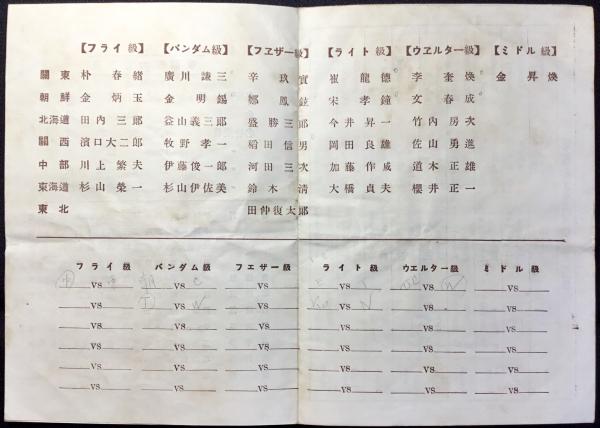 【フライ級】 【バンダム級】 【フヱザー級】 【ライト級】 【ウヱルター級】 【ミドル級】
關東 朴春緖 廣川謙三 辛玖實 崔龍德 李奎煥 金昇煥
朝鮮 金炳玉 金明錫 鄭鳳 宋孝鐘 文春成
北海道 田内三郎 益山義三郎 盛勝三郎 今井昇一 竹內房次
關西 濱口大二郎 牧野孝一 稻田信男 岡田良雄 佐山勇進
中部 川上繁夫 伊藤俊一郎 河田三次 加藤作成 道木正雄
東海道 杉山榮一 杉山伊佐美 鈴木淸 大橋貞夫 櫻井正一
東北 田仲復太郎
フライ級 バンダム級 フエザー級 ライト級 ウエルター級 ミドル級
vs vs vs vs vs vs
vs vs vs vs vs vs
vs vs vs vs vs vs
vs vs vs vs vs vs
vs vs vs vs vs vs
vs vs vs vs vs vs